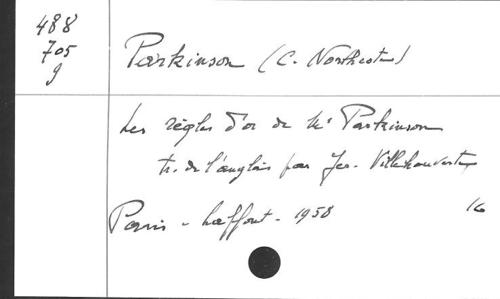 488
705
g
Parkinson (C. Northcote)
Les règles d'or de Mr Parkinson
tr. de l'anglais par Jer. Villehouverte
Paris - Laffont - 1958
16